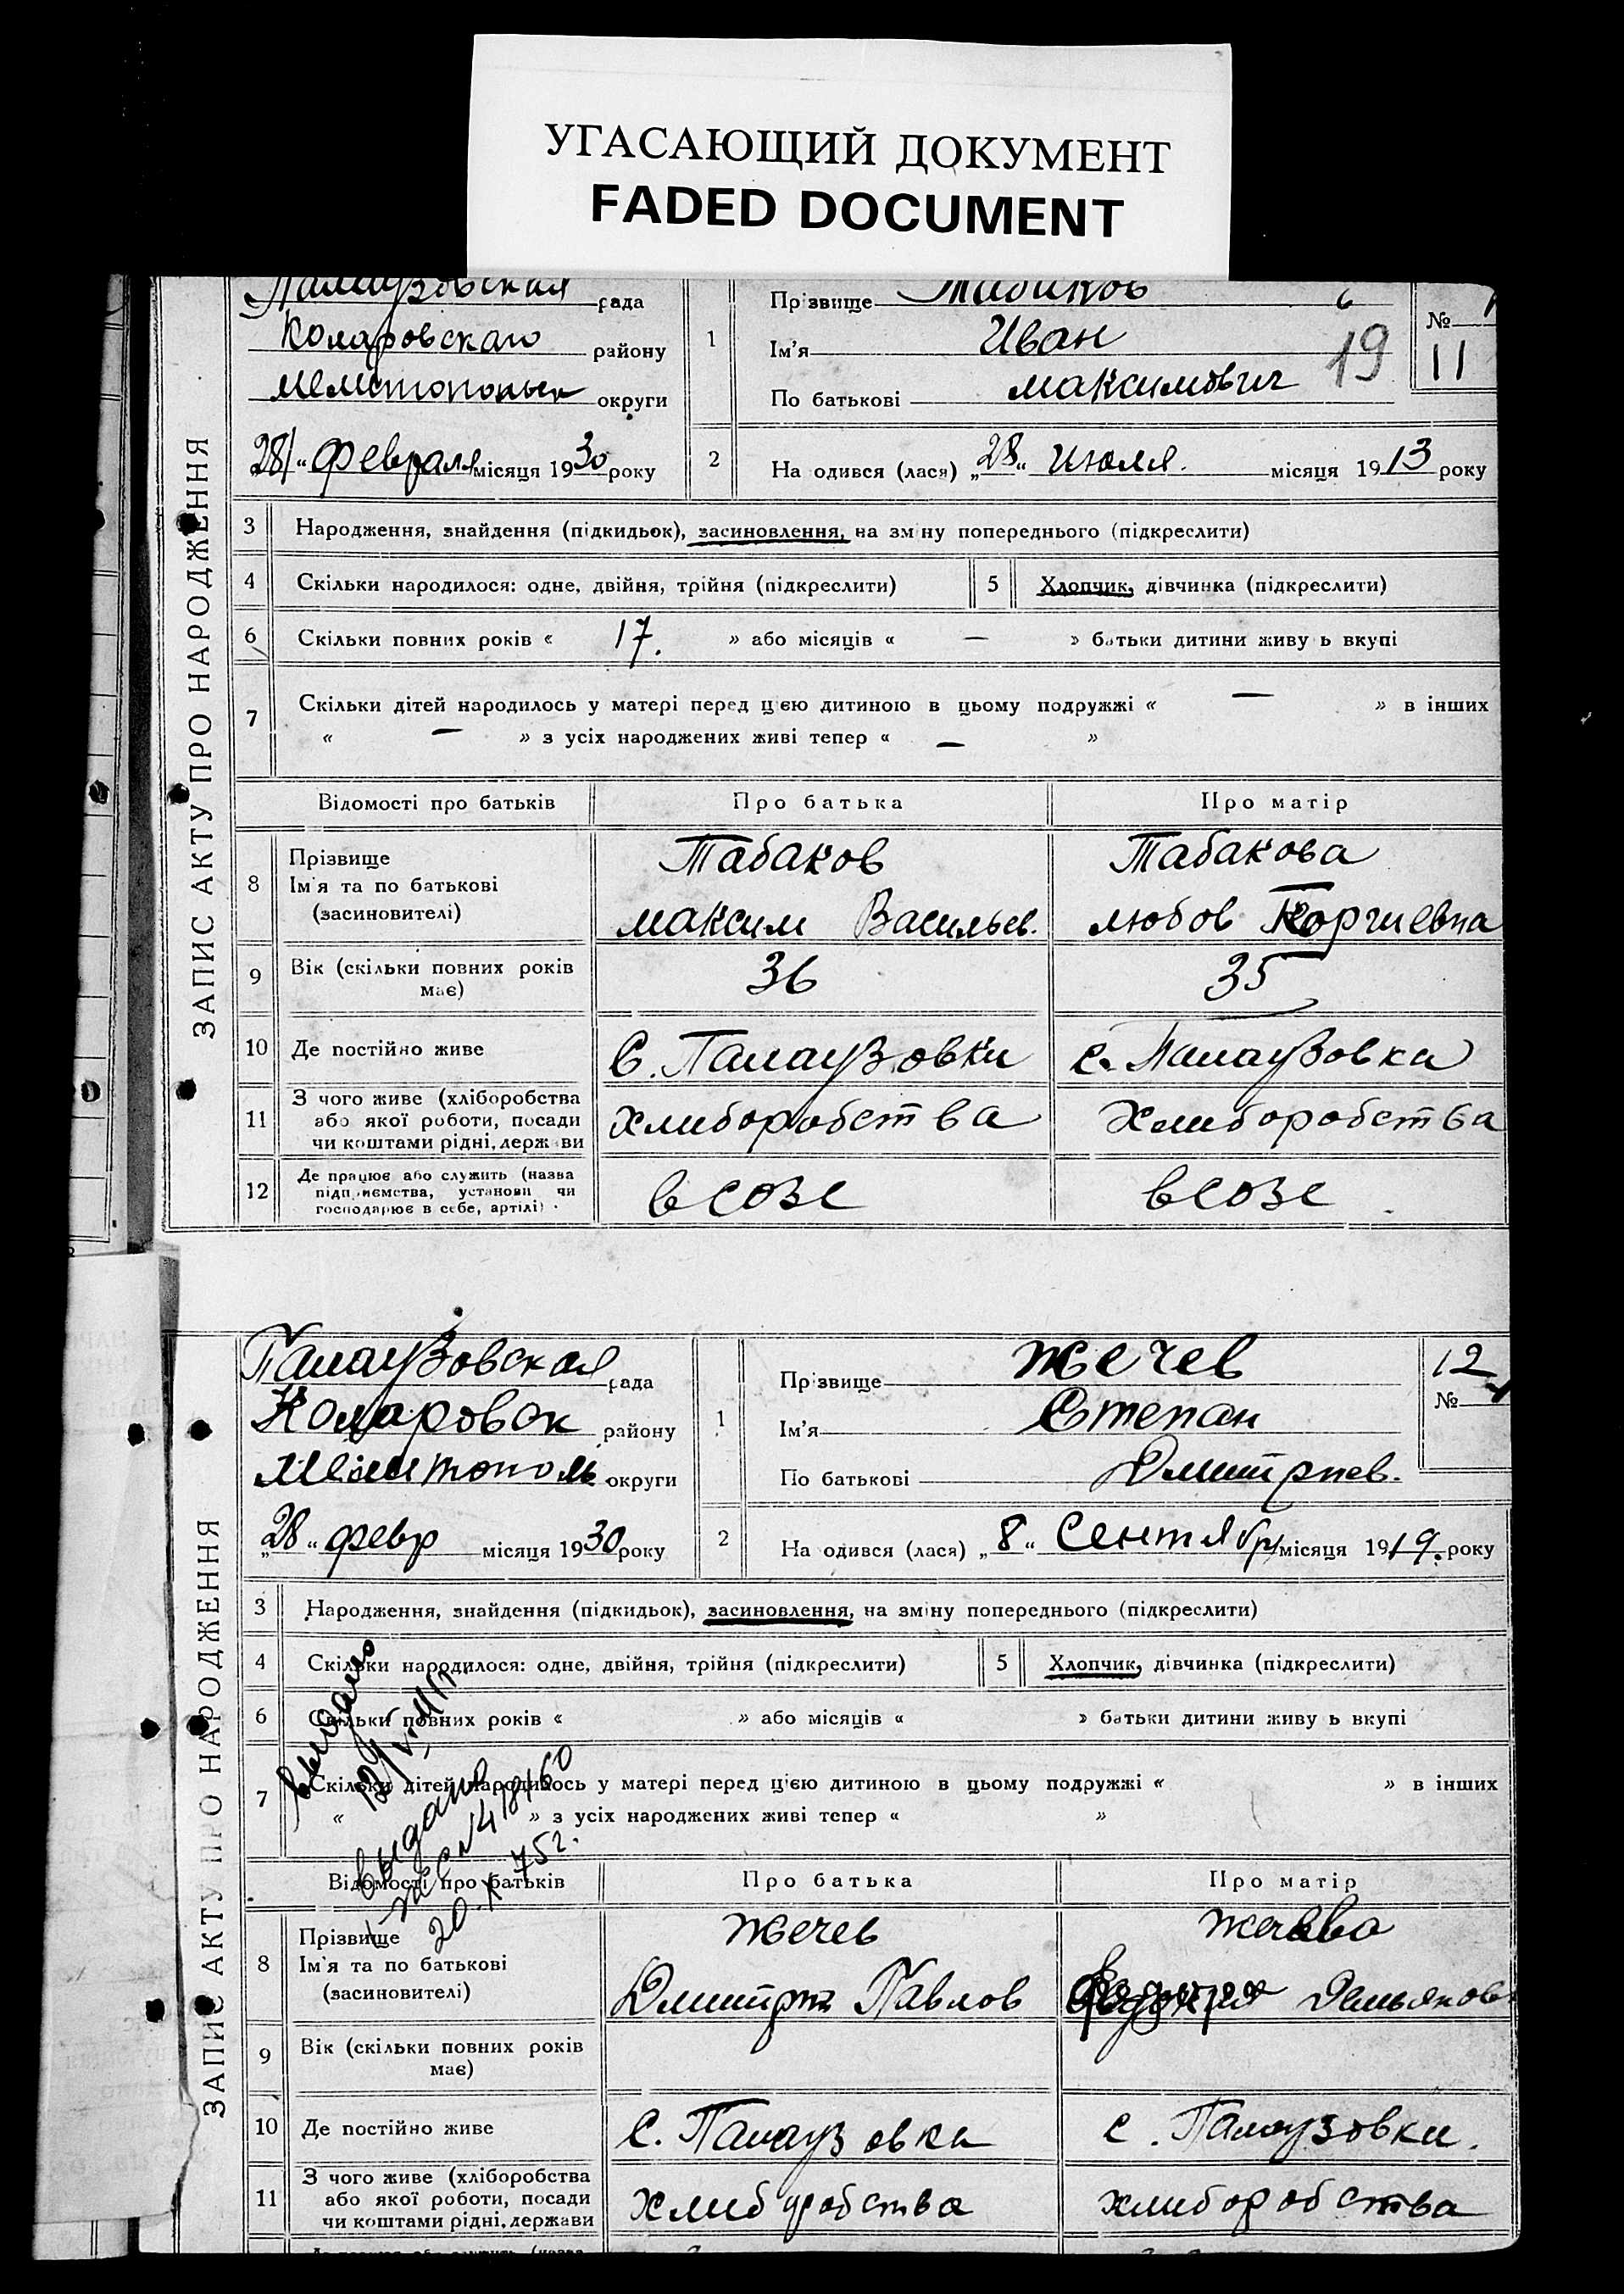 УГАСАЮЩИЙ ДОКУМЕНТ
FADED DOCUMENT
ЗАПИС АКТУ ПРО НАРОДЖЕННЯ
Палаузовская рада
Коларовскаго району
округи
28 февраля місяця 1930 року
1
Прізвище Табаков
Ім'я Иван
По батькові максимович
19
№
11
2
На одився (лася) „28“ июля місяця 1913 року
3 Народження, знайдення (підкидьок), засиновлення, на зміну попереднього (підкреслити)
4 Скільки народилося: одне, двійня, трійня (підкреслити)
5 Хлопчик, дівчинка (підкреслити)
6 Скільки повних років « 17. » або місяців « — » батьки дитини живуть вкупі
7 Скільки дітей народилось у матері перед цією дитиною в цьому подружжі « — » в інших
« — » з усіх народжених живі тепер « — »
Відомості про батьків Про батька Про матір
8 Прізвище
Ім'я та по батькові
(засиновителі)
Табаков
максим Васильев.
Табакова
любов Георгиевна
9 Вік (скільки повних років має)
36
35
10 Де постійно живе
С. Палаузовки
с. Палаузовка
11 З чого живе (хліборобства
або якої роботи, посади
чи коштами рідні, держави
хлиборобства
хлиборобства
12 Де працює або служить (назва
підприємства, установи чи
господарює в себе, артілі)
в созе
в созе
ЗАПИС АКТУ ПРО НАРОДЖЕННЯ
Палаузовская рада
Коларовск району
Мелитополь округи
„28“ февр місяця 1930 року
1
Прізвище Жечев
Ім'я Степан
По батькові Дмитриев.
12
№
2
На одився (лася) „8“ Сентябр місяця 1919. року
3 Народження, знайдення (підкидьок), засиновлення, на зміну попереднього (підкреслити)
4 Скільки народилося: одне, двійня, трійня (підкреслити)
5 Хлопчик, дівчинка (підкреслити)
6 Скільки повних років « » або місяців « » батьки дитини живуть вкупі
7 Скільки дітей народилось у матері перед цією дитиною в цьому подружжі « » в інших
« » з усіх народжених живі тепер « »
выдано
выдано
20.X 75г.
Відомості про батьків Про батька Про матір
8 Прізвище
Ім'я та по батькові
(засиновителі)
Жечев
Дмитрий Павлов
Жечева
Демьянов
9 Вік (скільки повних років має)
10 Де постійно живе
С. Палаузовка
с. Палаузовки.
11 З чого живе (хліборобства
або якої роботи, посади
чи коштами рідні, держави
хлиборобства
хлиборобства